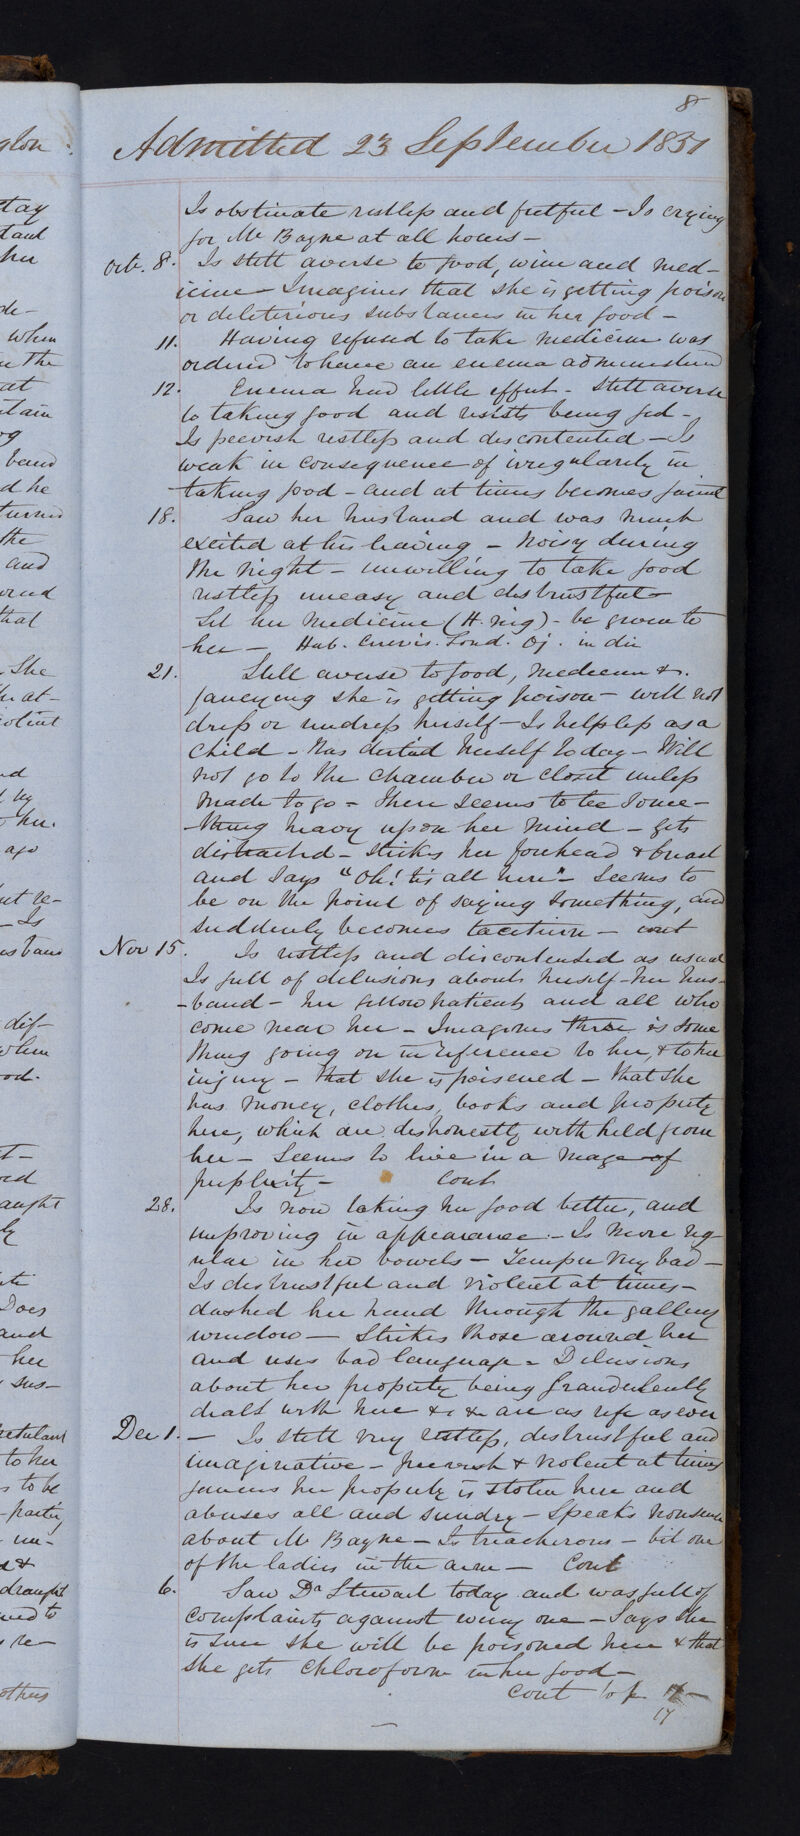 8
Admitted 23 September 1851
Is obstinate restless and fretful – Is crying
for Mr Bayne at all hours –
Oct. 8. Is still averse to food, wine and med-
icine – Imagines that she is getting poison
or deleterious substances in her food –
11. Having refused to take medicine was
ordered to have an enema administered
12. Enema had little effect – Still averse
to taking food and resists being fed –
Is peevish restless and discontented – Is
weak in consequence of irregularity in
taking food – and at times becomes faint
18. Saw her husband and was much
excited at his leaving – Noisy during
the night – unwilling to take food
restless uneasy and distrustful –
Let her medicine (H. nig) – be given to
her – Hab. Cerevis. Lond. in die
21. Still averse to food, medicine &.
fancying she is getting poison – will not
dress or undress herself – Is helpless as a
child – Has dirtied herself today – Will
not go to the chamber or closet unless
made to go – There seems to be some-
thing heavy upon her mind – gets
distracted – strikes her forehead & breast
and says "Oh! tis all here" – Seems to
be on the point of saying something, and
suddenly becomes taciturn – cont
Nov 15. Is restless and discontented as usual
Is full of delusions about herself – her hus-
-band – her fellow patients and all who
come near her – Imagines there is some
thing going on in reference to her, & to her
injury – that she is poisened – that she
has money, clothes, books and property
here, which are dishonestly withheld from
her – Seems to live in a maze of
perplexity – Cont
28. Is now taking her food better, and
improving in appearance – Is more reg-
ular in her bowels – Temper very bad –
Is distrustful and violent at times –
dashed her hand through the gallery
window – Strikes those around her
and uses bad language – Delusions
about her property being fraudulently
dealt with here &c &c are as rife as ever
Dec 1. – Is still very restless, distrustful and
imaginative – peevish & violent at times
fancies her property is stolen here and
abuses all and sundry – Speaks nonsense
about Mr Bayne – Is treacherous – bit one
of the ladies in the arm – Cont
6. Saw Dr Stewart today and was full of
complaints against every one – Says she
is sure she will be poisoned here & that
she gets chloroform in her food –
Cont to p
17